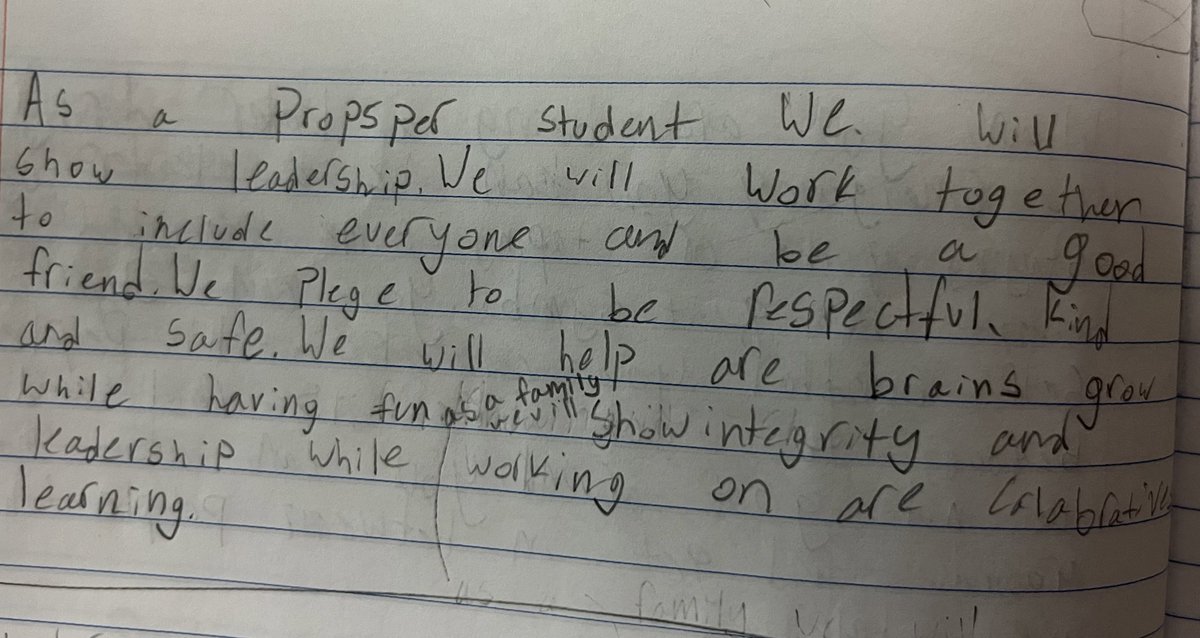 As a Propsper student We. Will
show leadership. We will Work together
to include everyone and be a good
friend. We Plege to be respectful, kind
and safe. We will help are brains grow
while having fun as a family we will show integrity and
leadership while working on are Colabrative
learning.
as a family we will